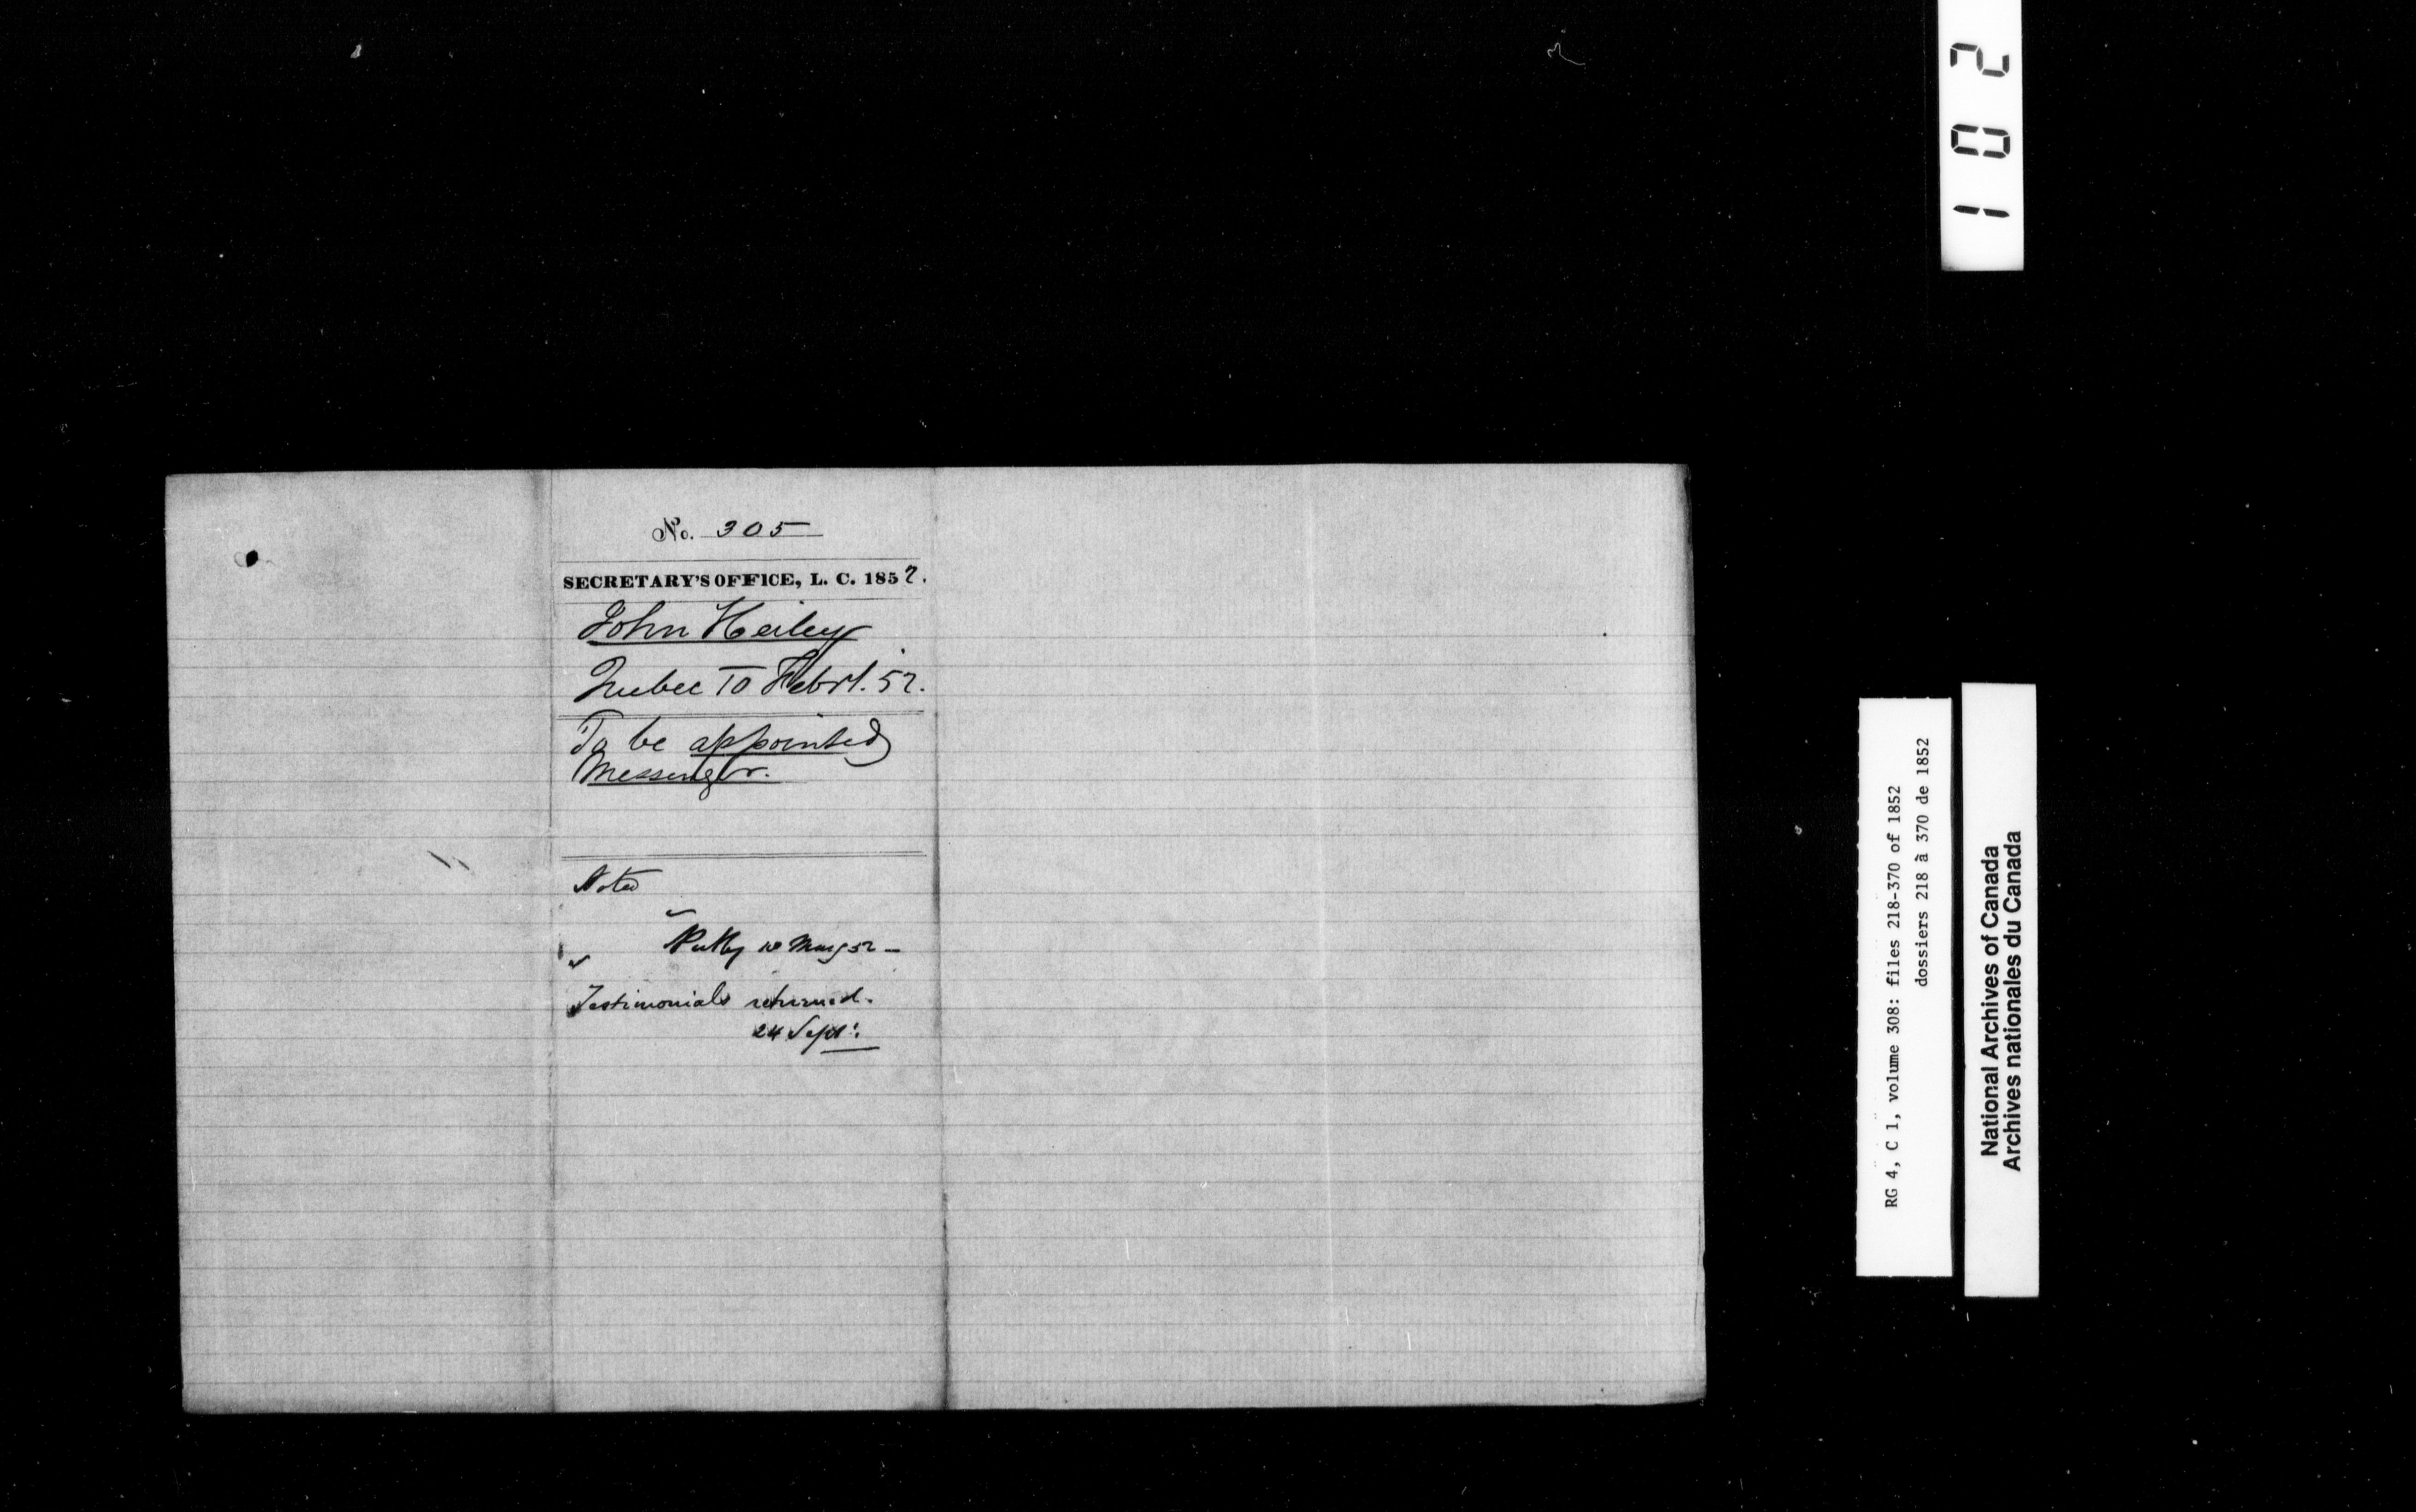 No. 305
SECRETARY'S OFFICE, L. C. 1852.
John Heiley
Quebec 10 Febry. 52.
To be appointed
Messenger.
Noted
10 May 52 -
Testimonials returned.
24 Sept:
102
RG 4, C 1, volume 308: files 218-370 of 1852
dossiers 218 à 370 de 1852
National Archives of Canada
Archives nationales du Canada